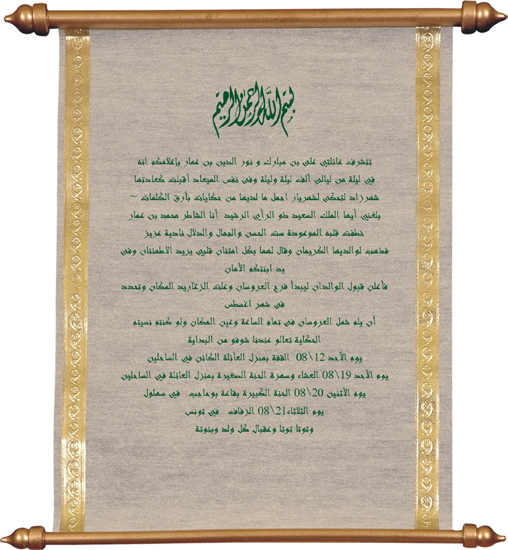 بسم الله الرحمن الرحيم
تتشرف عائلتي علي بن مبارك و نور الدين بن عمار بإعلامكم انه
في ليلة من ليالي ألف ليلة وليلة وفي نفس الميعاد أقبلت كعادتها
شهرزاد لتحكي لشهريار اجمل ما لديها من حكايات بأرق الكلمات ~
بلغني أيها الملك السعيد ذو الرأي الرشيد أنا الشاطر محمد بن عمار
خطفت قلبه الموعودة ست الحسن والجمال والدلال نادية عزيز
فذهب لوالديها الكريمان وقال لهما بكل امتنان قلبي يريد الاطمئنان وفي
يد ابنتكم الأمان
فأعلن قبول الوالدان ليبدأ فرح العروسان وعلت الزغاريد المكان وتحدد
في شهر اغسطس
أن يلو شمل العروسان في تمام الساعة وعين المكان ولو كنتم نسيتو
الحكاية تعالو عندنا شوفو من البداية
يوم الأحد 12\08 القفة بمنزل العائلة الكائن في الساحلين
يوم الأحد 19\08 العشاء وسهرة الحنة الصغيرة بمنزل العائلة في الساحلين
يوم الأثنين 20\08 الحنة الكبيرة بقاعة بوحاجب في سهلول
يوم الثلاثاء21\08 الزفاف في تونس
وتوتا توتا وعقبال كل ولد وبنوتة